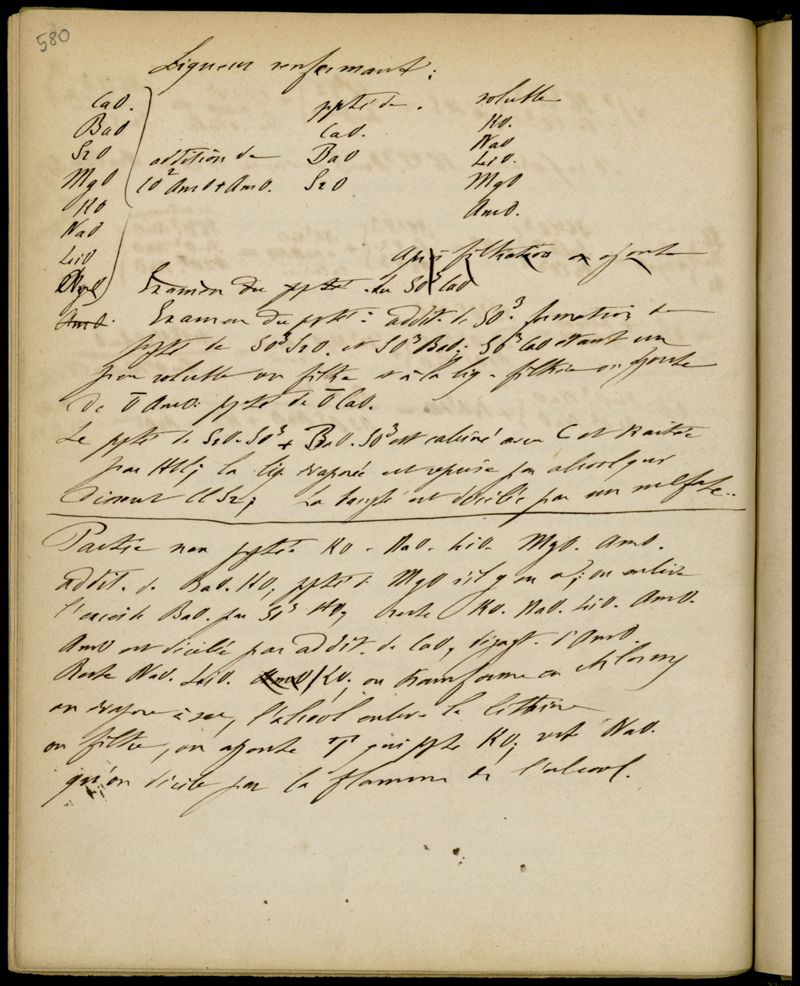 580
Liqueur renfermant :
CaO. ppté de. soluble
BaO CaO. KO.
SrO addition de BaO NaO
MgO CO² AmO + AmO. SrO LiO.
KO MgO
NaO AmO.
LiO Après filtration on ajoute
MgO Examen du ppté. SO³ CaO
AmO. Examen du ppté : addit. de SO³. formation de
ppté de SO³SrO. et SO³BaO; SO³CaO étant un
peu soluble on filtre et à la liq. filtrée on ajoute
de O̅ AmO: ppté de O̅ CaO.
Le ppté de SrO.SO³ + BaO.SO³ est calciné avec C et traité
par HCl; la liq. évaporée est reprise par alcool qui
dissout ClSr; la est décelée par un sulfate..
Partie non pptée KO. NaO. LiO. MgO. AmO.
addit. de BaO.HO, ppté de MgO s'il y en a; on enlève
l'excès de BaO. par HO, reste KO. NaO. LiO. AmO.
AmO est décelée par addit. de CaO, dégagt. d'AmO
Reste NaO. LiO. AmO/KO; on transforme en chlorures
on évapore à sec, l'alcool enlève la lithine
on filtre, on ajoute T̅ qui ppte KO; reste NaO.
qu'on décèle par la flamme de l'alcool.